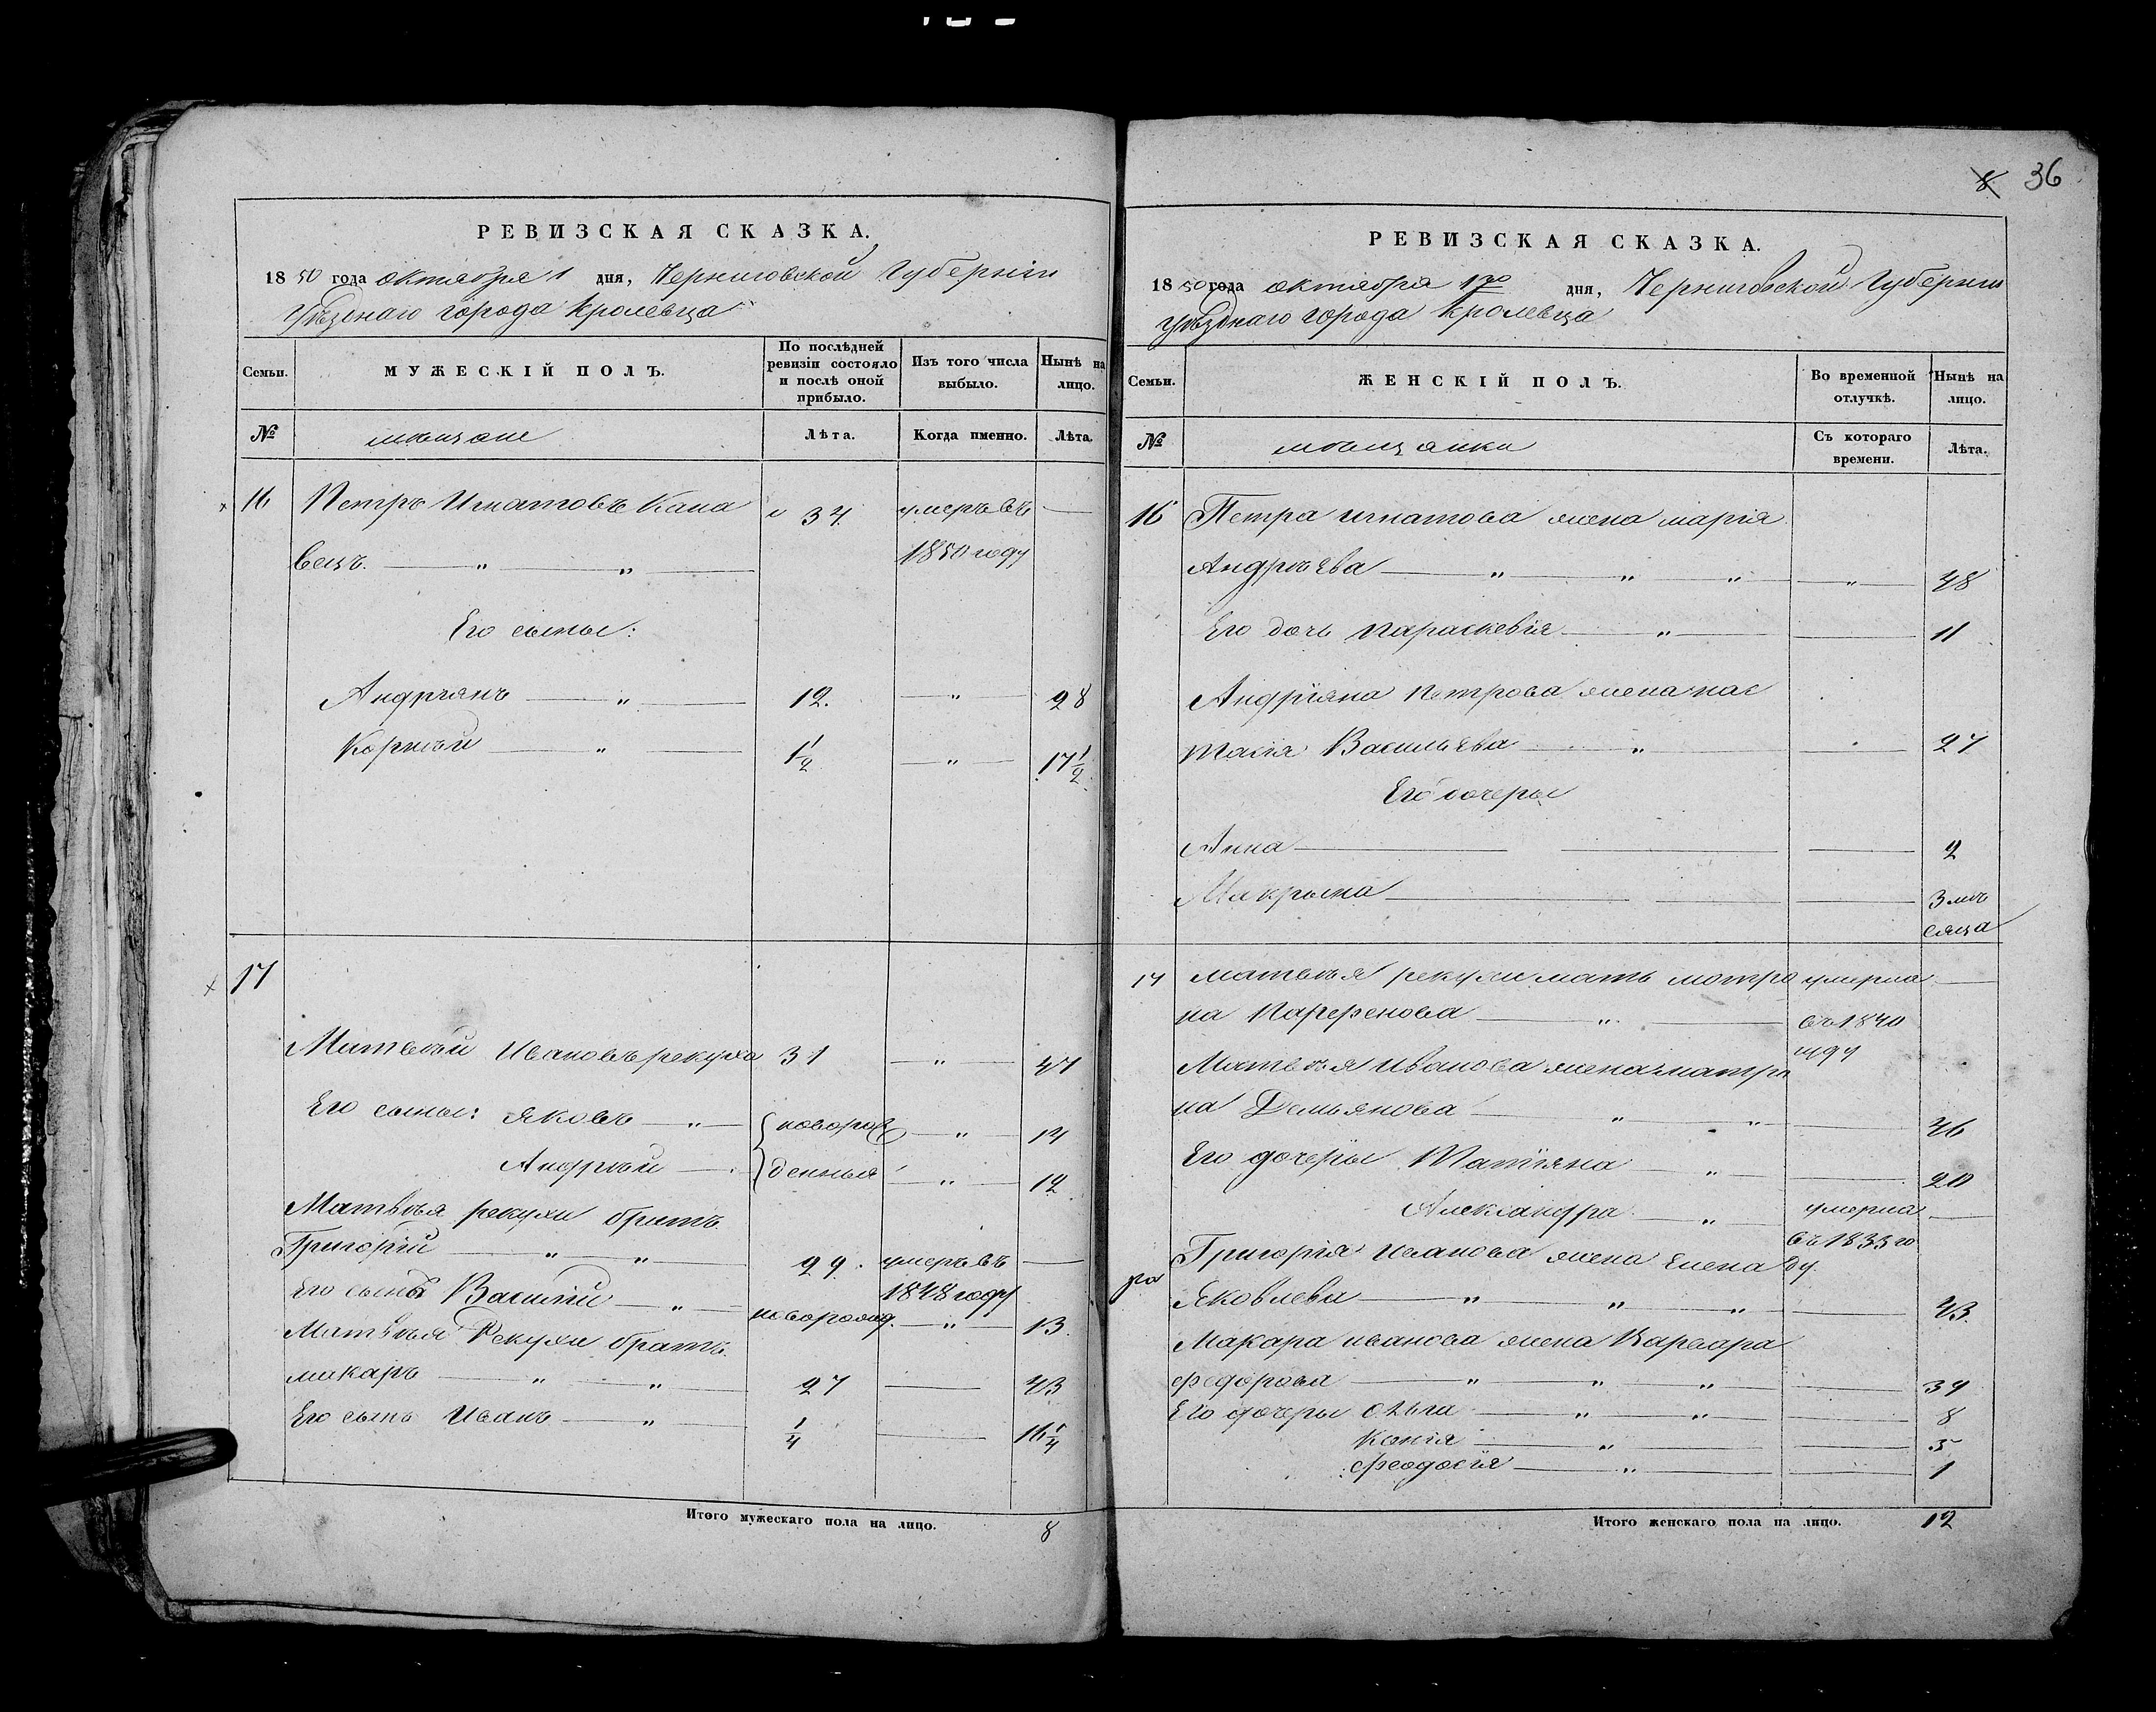 8 36
РЕВИЗСКАЯ СКАЗКА.
1850 года октября 1 дня, Черниговской Губерніи
уѣзднаго города Кролевца
Семьи. МУЖЕСКІЙ ПОЛЪ. По послѣдней ревизіи состояло и послѣ оной прибыло. Изъ того числа выбыло. Нынѣ на лицо.
№ мѣщане Лѣта. Когда именно. Лѣта.
16 Петръ Игнатовъ Кана 34 умеръ въ —
вецъ. — " — " — 1850 году
Его сыны:
Андріянъ — " — 12. — " — 28
Корнѣй — " — 1 1/2 — " — 17 1/2
17
Матвѣй Ивановъ рекуха 31 — " — 47
Его сыны: Яковъ — " — новорож — " — 14
Андрѣй — денныя — " — 12
Матвѣя рекухи братъ
Григорій — " — " — 29. умеръ въ —
Его сынъ Василій — " — 1848 году
новорожд. — " — 13
Матвѣя Рекухи братъ
макаръ — " — " — 27 — 43
Его сынъ Иванъ — " — 1/4 — 16 1/4
Итого мужескаго пола на лицо. 8
РЕВИЗСКАЯ СКАЗКА.
1850 года октября 1го дня, Черниговской Губерніи
уѣзднаго города Кролевца
Семьи. ЖЕНСКІЙ ПОЛЪ. Во временной отлучкѣ. Нынѣ на лицо.
№ мѣщанки Съ котораго времени. Лѣта.
16 Петра игнатова жена марія
Андрѣева — " — " — " — " — 48
Его дочь параскевія — " — — 11
Андріяна Петрова жена нас
тасія Васильева — " — — 27
Его дочеры
Анна — — — 2
Макрына — — — 3 мѣ
сяца
17 матвѣя рекухи мать мотро умерла —
на Парфенова — " — въ 1840
году
Матвѣя Иванова жена матро
на Демьянова — " — " — 46
Его дочеры Татіяна — " — — 20
Александра — " — умерла —
Григорія иванова жена Елена въ 1833 го
ду
Яковлева — " — " — " — 43
Макара иванова жена Варвара
Федорова — " — " — " — 39
Его дочеры Ольга — " — " — 8
Ксенія — " — — 5
Феодосія — " — — 1
Итого женскаго пола на лицо. 12